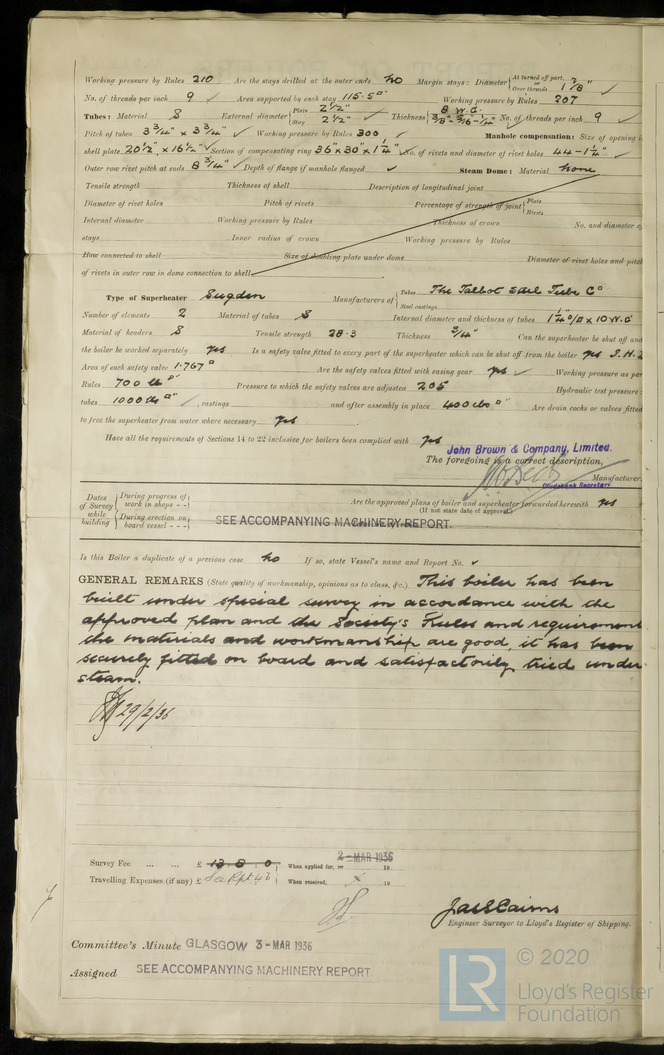 Working pressure by Rules 210 Are the stays drilled at the outer ends No Margin stays: Diameter { At turned off part, or Over threads 1 7/8"
No. of threads per inch 9 ✓ Area supported by each stay 115·5 □" Working pressure by Rules 207
Tubes: Material S External diameter { Plain 2 1/2" Stay 2 1/2" ✓ Thickness { 8 W.G. 3/8"-5/16-1/4" No. of threads per inch 9 ✓
Pitch of tubes 3 3/4" x 3 3/4" ✓ Working pressure by Rules 300 Manhole compensation: Size of opening i
shell plate 20 1/2" x 16 1/2" ✓ Section of compensating ring 36" x 30" x 1 1/4" ✓ No. of rivets and diameter of rivet holes 44 - 1 1/4" ✓
Outer row rivet pitch at ends 8 3/4" ✓ Depth of flange if manhole flanged ✓ Steam Dome: Material None
Tensile strength Thickness of shell Description of longitudinal joint
Diameter of rivet holes Pitch of rivets Percentage of strength of joint { Plate Rivets
Internal diameter Working pressure by Rules Thickness of crown No. and diameter o
stays Inner radius of crown Working pressure by Rules
How connected to shell Size of doubling plate under dome Diameter of rivet holes and pitch
of rivets in outer row in dome connection to shell
Type of Superheater Sugden Manufacturers of { Tubes The Talbot Steel Tube Co Steel castings
Number of elements 2 Material of tubes S Internal diameter and thickness of tubes 1 1/4" O/D x 10 W.G
Material of headers S Tensile strength 28·3 Thickness 3/4" Can the superheater be shut off and
the boiler be worked separately yes Is a safety valve fitted to every part of the superheater which can be shut off from the boiler yes S.H.
Area of each safety valve 1·767 □" Are the safety valves fitted with easing gear yes ✓ Working pressure as per
Rules 700 lb □" Pressure to which the safety valves are adjusted 205 Hydraulic test pressure:
tubes 1000 lbs □" ✓, castings and after assembly in place 400 lbs □" Are drain cocks or valves fitted
to free the superheater from water where necessary yes
Have all the requirements of Sections 14 to 22 inclusive for boilers been complied with yes
John Brown & Company, Limited.
The foregoing is a correct description,
Clydebank Secretary Manufacturer.
Dates of Survey while building { During progress of work in shops - - Are the approved plans of boiler and superheater forwarded herewith yes
(If not state date of approval.)
During erection on board vessel - - - SEE ACCOMPANYING MACHINERY REPORT.
Is this Boiler a duplicate of a previous case No If so, state Vessel's name and Report No. ✓
GENERAL REMARKS (State quality of workmanship, opinions as to class, &c.) This boiler has been
built under special survey in accordance with the
approved plan and the Society's Rules and requirement
the materials and workmanship are good, it has been
securely fitted on board and satisfactorily tried under
steam.
29/2/36
Survey Fee ... ... £ 13 : 8 : 0 When applied for, 2 - MAR 1936 19
Travelling Expenses (if any) £ When received, 19
Jas S Cairns
Engineer Surveyor to Lloyd's Register of Shipping.
Committee's Minute GLASGOW 3 - MAR 1936
Assigned SEE ACCOMPANYING MACHINERY REPORT
LR © 2020
Lloyd's Register
Foundation